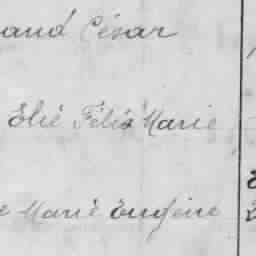 and César
Elié Félix Marie
Marie Eugène